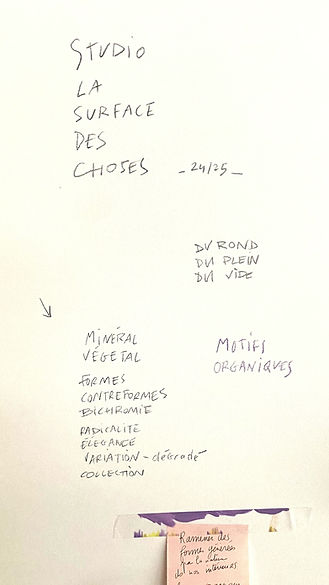 STUDIO
LA
SURFACE
DES
CHOSES _24/25_
DU ROND
DU PLEIN
DU VIDE
MINÉRAL
VÉGÉTAL
FORMES
CONTREFORMES
BICHROMIE
RADICALITÉ
ÉLÉGANCE
VARIATION - dégradé
COLLECTION
MOTIFS
ORGANIQUES
Ramener des
formes générées